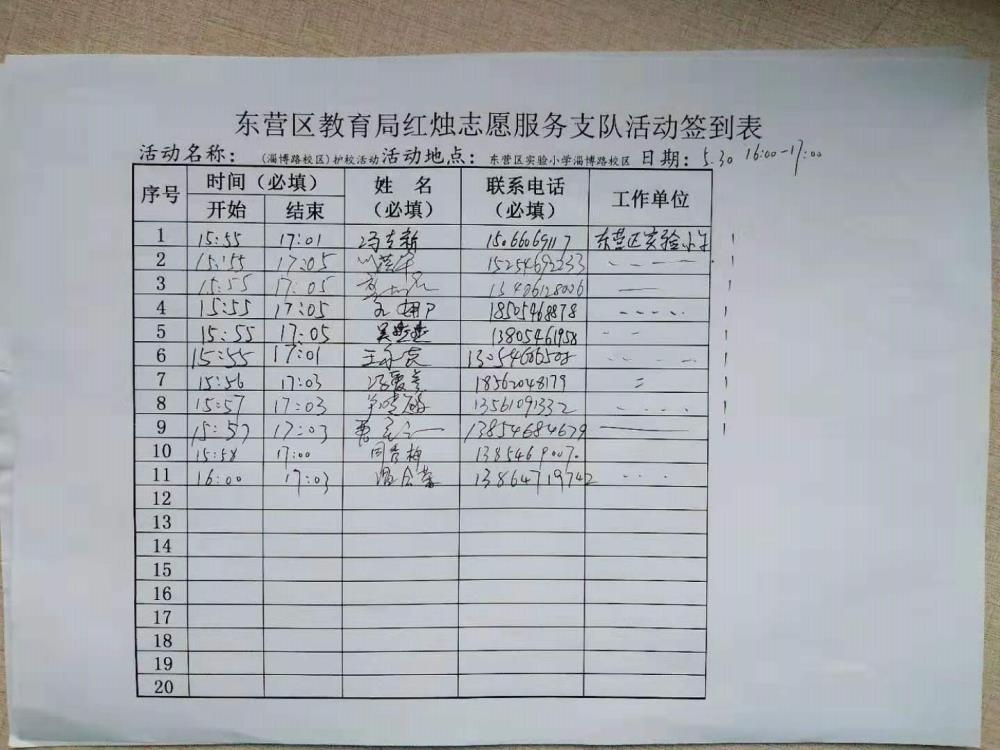 东营区教育局红烛志愿服务支队活动签到表
活动名称：（淄博路校区）护校活动 活动地点：东营区实验小学淄博路校区 日期：5.30 16:00-17:00
序号 时间（必填） 姓 名（必填） 联系电话（必填） 工作单位
开始 结束
1 15:55 17:01 15066069117 东营区实验小学
2 15:55 17:05 15254692233
3 15:55 17:05 15406128006
4 15:55 17:05 18505468878
5 15:55 17:05 吴楚楚 13805461958
6 15:55 17:01 王永亮
7 15:56 17:03 冯爱美 18562048179
8 15:57 17:03 13561091332
9 15:57 17:03 13854684679
10 15:58 17:00 周青梅
11 16:00 17:03 13864719742
12
13
14
15
16
17
18
19
20